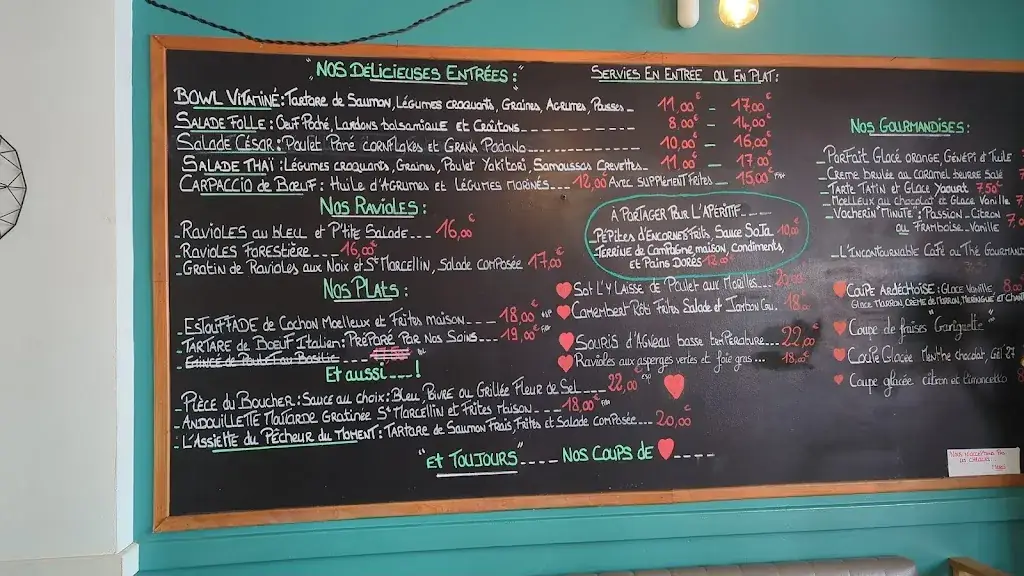 "NOS DÉLICIEUSES ENTRÉES:"
SERVIES EN ENTRÉE OU EN PLAT:
BOWL VITAMINÉ: Tartare de Saumon, Légumes croquants, Graines, Agrumes, Pousses _ 11,00€ _ 17,00€
SALADE FOLLE: Oeuf Poché, Lardons balsamique et Croûtons ____ 8,00€ _ 14,00€
SALADE CÉSAR: Poulet Pané cornflakes et Grana Padano ____ 10,00€ _ 16,00€
SALADE THAÏ: Légumes croquants, Graines, Poulet Yakitori, Samoussas Crevettes __ 11,00€ _ 17,00€
CARPACCIO de BOEUF: Huile d'AGRUMES et LÉGUMES MARINÉS ___ 12,00€ AVEC SUPPLÉMENT FRITES ___ 15,00€
NOS RAVIOLES:
_ RAVIOLES au bleu et P'tite Salade ___ 16,00€
_ RAVIOLES FORESTIÈRE ____ 16,00€
_ GRATIN de RAVIOLES aux Noix et St MARCELLIN, Salade composée 17,00€
NOS PLATS:
_ ESTOUFFADE de Cochon Moelleux et Frites maison ____ 18,00€
_ TARTARE de BOEUF Italien: PRÉPARÉ PAR NOS SOINS ___ 19,00€
ET AUSSI ___ !
_ PIÈCE DU BOUCHER: SAUCE au choix: Bleu, Poivre ou Grillée Fleur de Sel ___ 22,00€
_ ANDOUILLETTE MOUTARDE Gratinée St MARCELLIN et Frites Maison ___ 18,00€
_ L'ASSIETTE du PÊCHEUR du MOMENT: TARTARE de Saumon Frais, Frites et Salade composée ___ 20,00€
"ET TOUJOURS" ____ NOS COUPS DE ♥ _____
À PARTAGER POUR L'APÉRITIF ____
_ PÉPITES d'ENCORNETS FRITS, SAUCE SOJA 10,00€
_ TERRINE de CAMPAGNE maison, CONDIMENTS,
et PAINS DORÉS 12,00€
♥ Sot L'Y LAISSE de POULET aux MORILLES ___ 20,00
♥ CAMEMBERT Rôti Frites Salade et Jambon Cru __ 18,00
♥ SOURIS D'AGNEAU basse temPÉRATURE ___ 22,00€
♥ RAVIOLES aux asperges vertes et foie gras ___ 18,00€
NOS GOURMANDISES:
_ PARFAIT Glacé orange, GÉNÉPI et Tuile
_ CRÈME brulée au CARAMEL beurre Salé
_ TARTE TATIN et Glace Yaourt 7,50€
_ Moelleux au Chocolat et Glace Vanille
_ VACHERIN MINUTE: PASSION_CITRON
ou FRAMBOISE_VANILLE
_ L'INCONTOURNABLE CAFÉ ou THÉ GOURMAND
♥ COUPE ARDÉCHOISE: GLACE VANILLE, 8,00
GLACE MARRON, CRÈME de MARRON, MERINGUE et
♥ Coupe de fraises "Gariguette"
♥ Coupe Glacée Menthe chocolat, Get 27
♥ Coupe glacée citron et limoncello